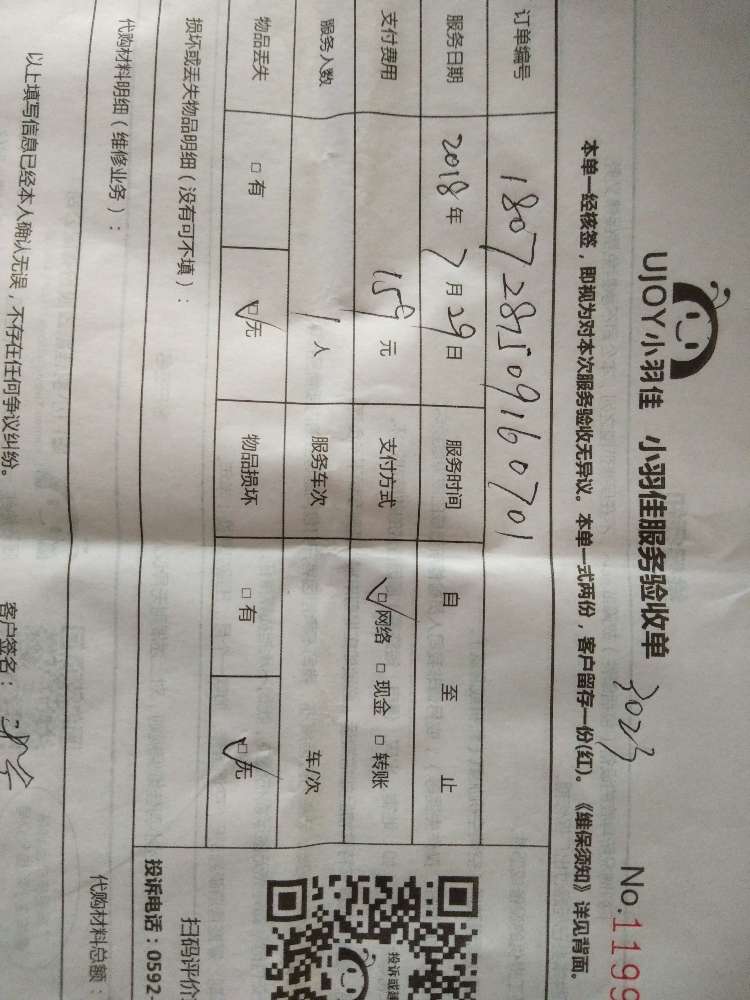 UJOY小羽佳 小羽佳服务验收单
3023
No.1199
本单一经核签，即视为对本次服务验收无异议。本单一式两份，客户留存一份(红)。《维保须知》详见背面。
订单编号 180728509160701
服务日期 2018年7月29日 服务时间 自 至 止
支付费用 159元 支付方式 ☑网络 □现金 □转账
服务人数 1人 服务车次 车/次
物品丢失 □有 ☑无 物品损坏 □有 ☑无
损坏或丢失物品明细（没有可不填）：
代购材料明细（维修业务）：
代购材料总额：
以上填写信息已经本人确认无误，不存在任何争议纠纷。
客户签名：
扫码评价
投诉电话：0592-
投诉或建